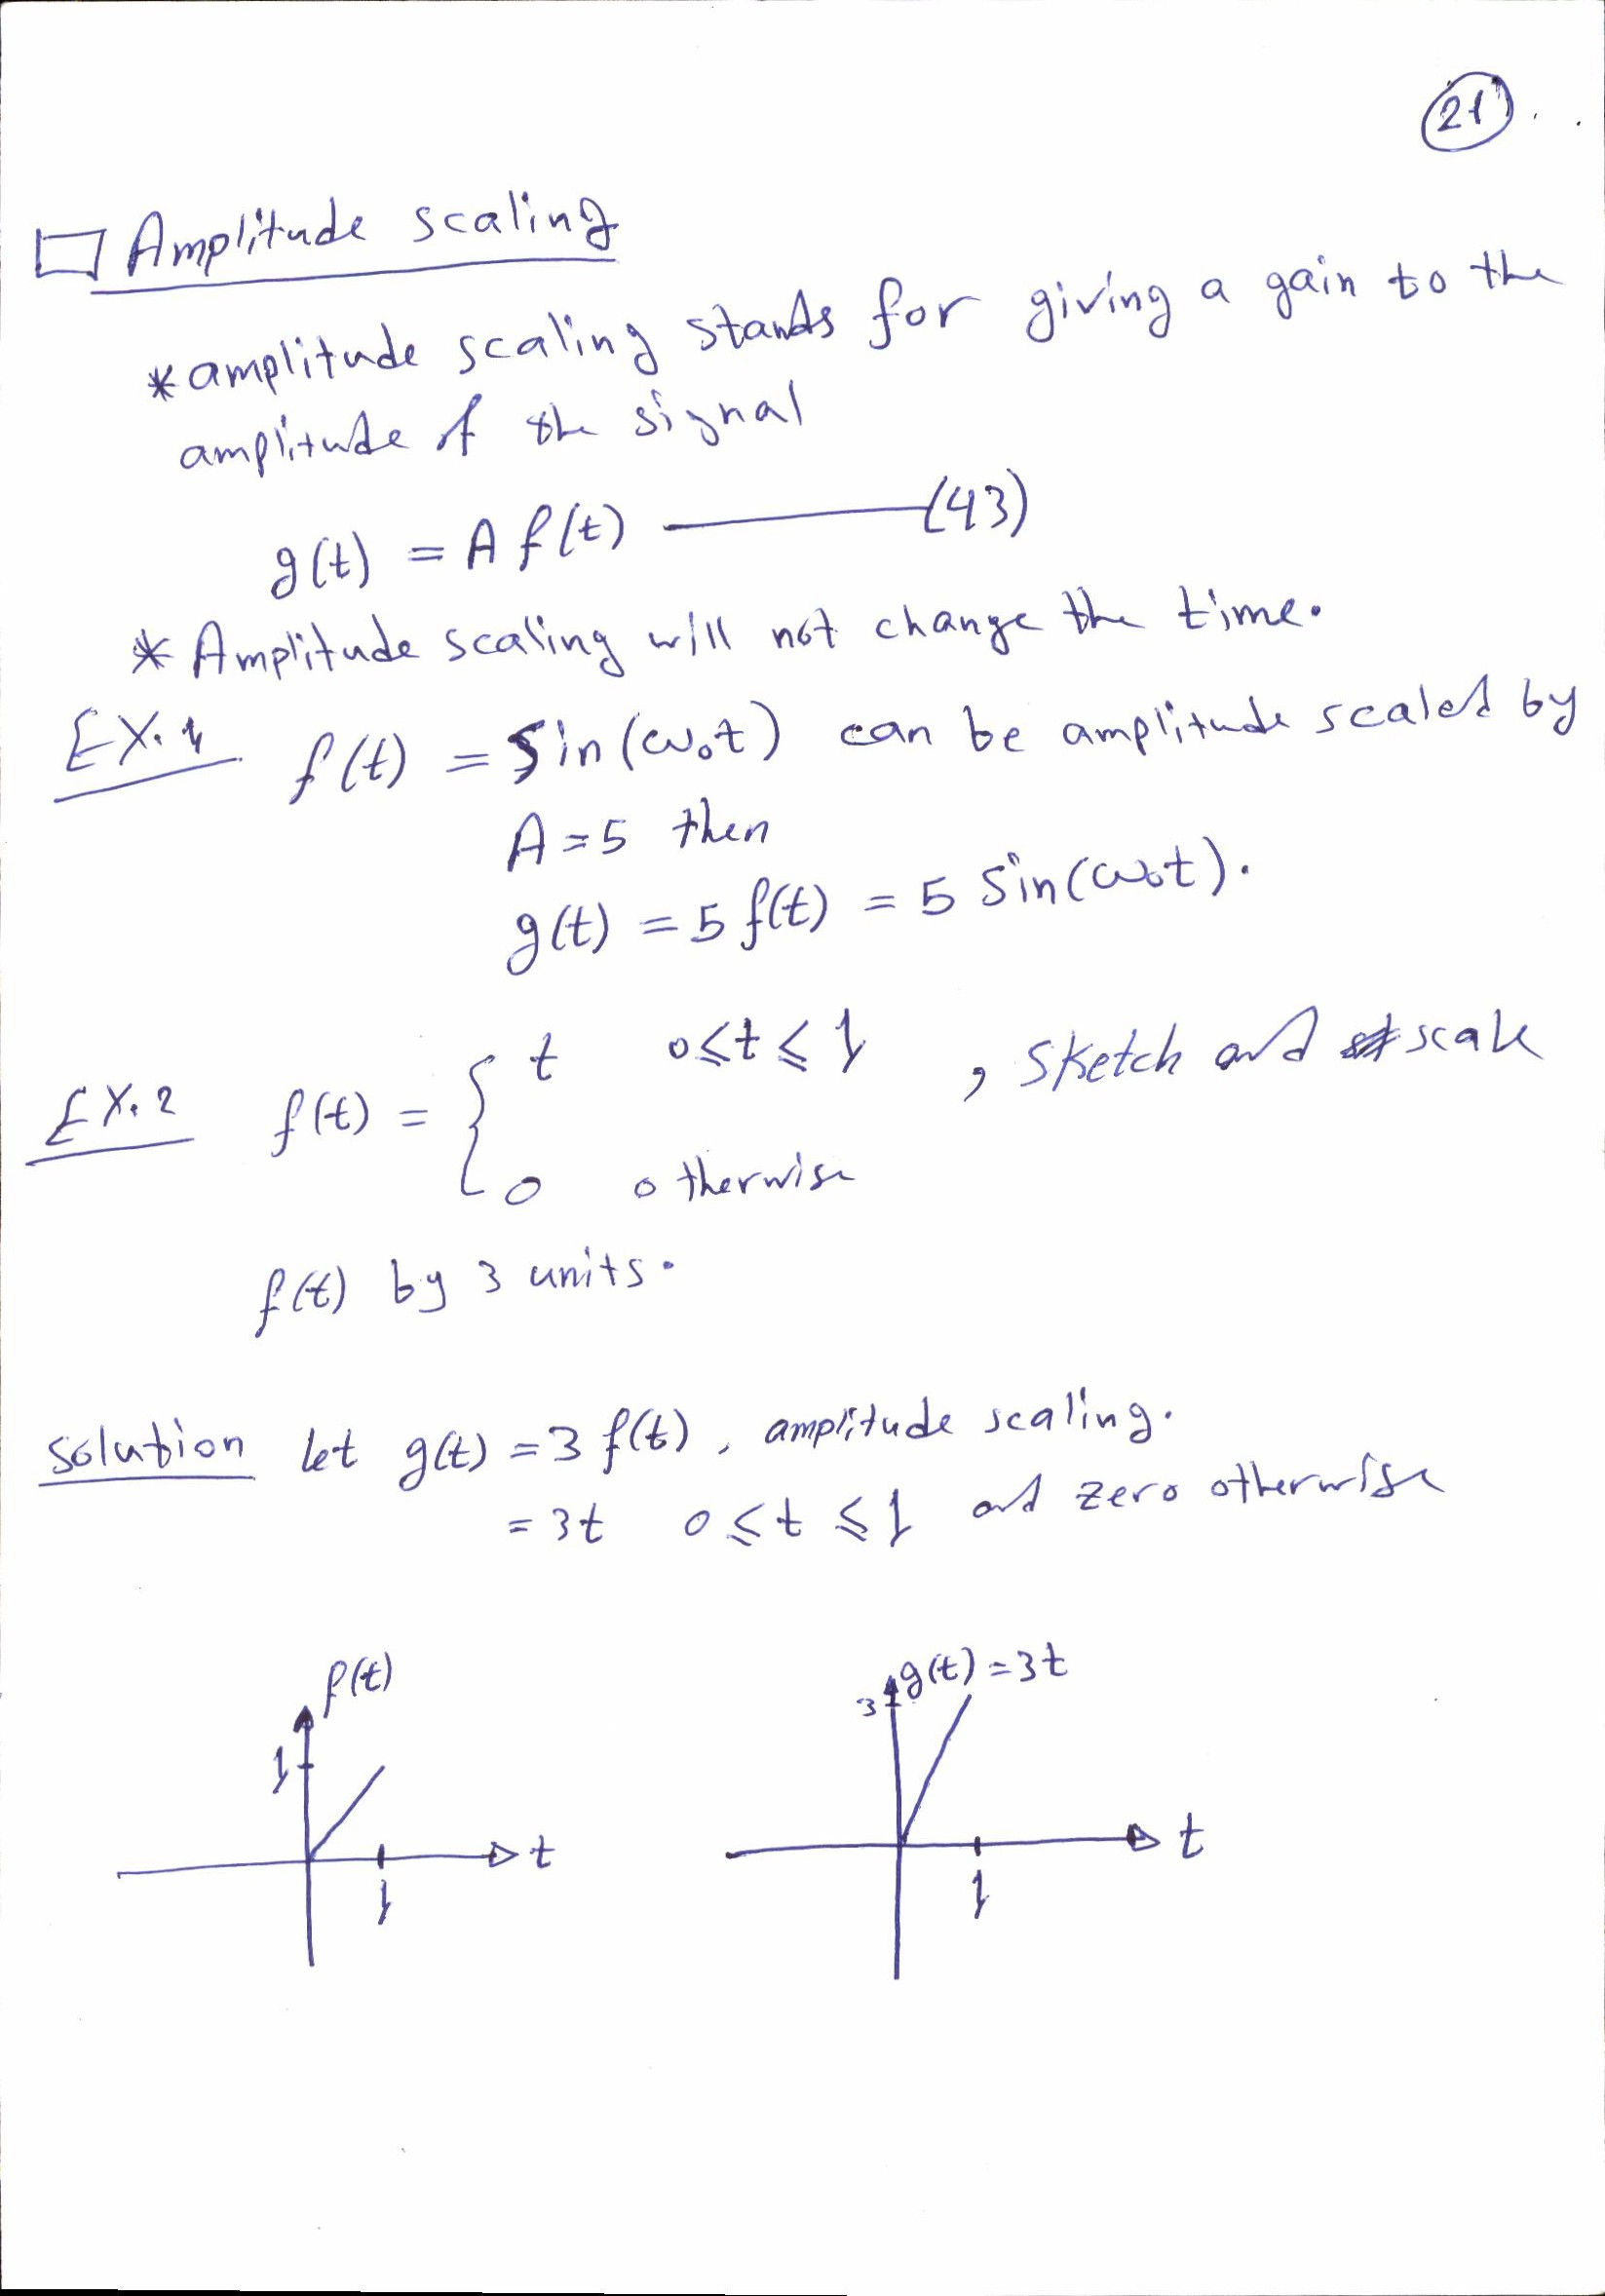 21
Amplitude scaling
* amplitude scaling stands for giving a gain to the
amplitude of the signal
g(t) = A f(t) ——— (43)
* Amplitude scaling will not change the time.
EX. 1 f(t) = Sin(ω₀t) can be amplitude scaled by
A = 5 then
g(t) = 5 f(t) = 5 Sin(ω₀t).
EX. 2 f(t) = { t 0 ≤ t ≤ 1 , sketch and scale
0 otherwise
f(t) by 3 units.
Solution let g(t) = 3 f(t), amplitude scaling.
= 3t 0 ≤ t ≤ 1 and zero otherwise
f(t)
1
t
1
g(t) = 3t
3
t
1